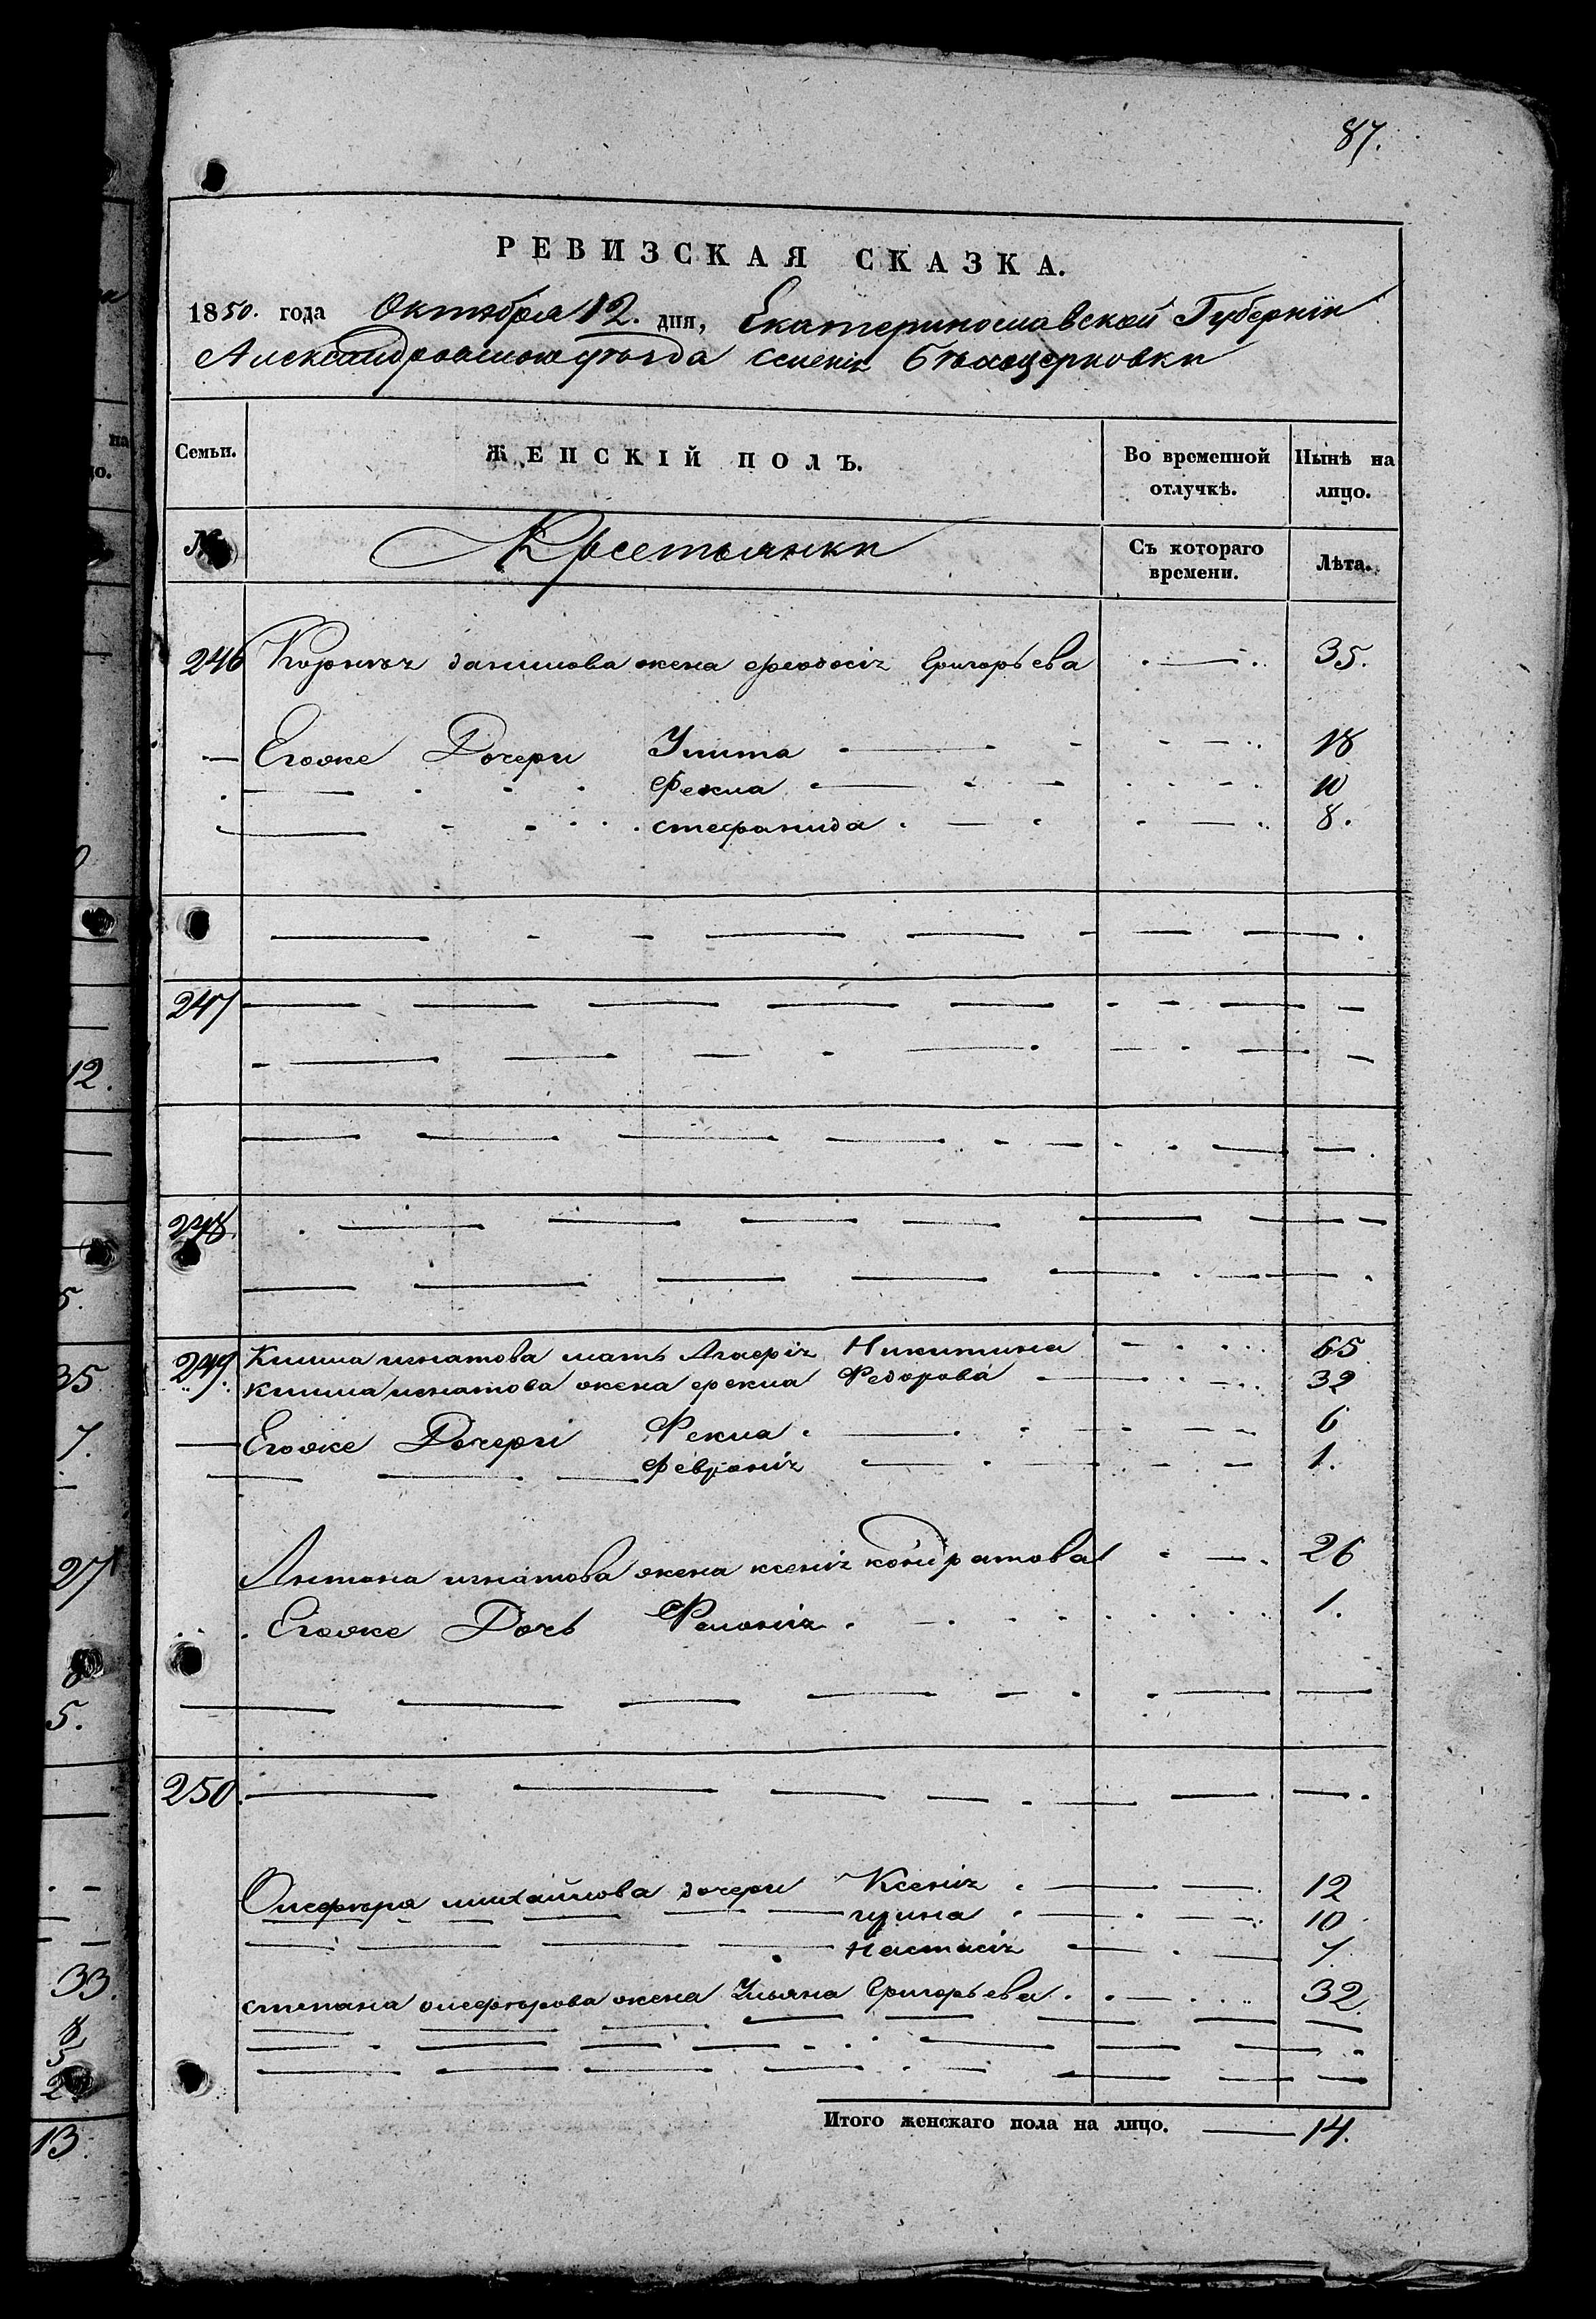 87.
РЕВИЗСКАЯ СКАЗКА.
1850. года Октября 12. дня, Екатеринославской Губернiи
Александровскаго уѣзда селенiя Бѣлоцерковки
Семьи. ЖЕНСКIЙ ПОЛЪ. Во временной отлучкѣ. Нынѣ на лицо.
№ Крестьянки Съ котораго времени. Лѣта.
246 данилова жена феодосiя Григорьева 35.
Егоже Дочери Улита 18
Фекла 10
стефанида 8.
247
248
249 Клима игнатова мать Агафiя Никитина 65
клима игнатова жена фекла Федорова 32
Егоже Дочери Фекла 6
февронiя 1.
Антона игнатова жена ксенiя кондратова 26
Егоже Дочь 1.
250.
Олефира михайлова дочери Ксенiя 12
10
Настасiя 7.
степана олефирова жена Ульяна Григорьева. 32.
Итого женскаго пола на лицо. 14.
12.
5.
35
7.
27
5.
33.
8
13